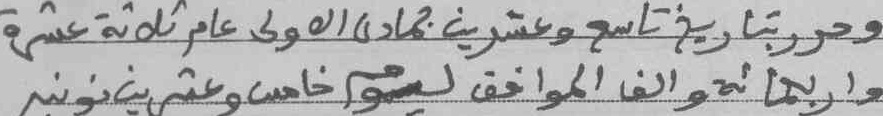 وحرر بتاريخ تاسع وعشرين جمادى الاولى عام ثلاثة عشرة
واربعمائة والف الموافق ليوم خامس وعشرين نونبر